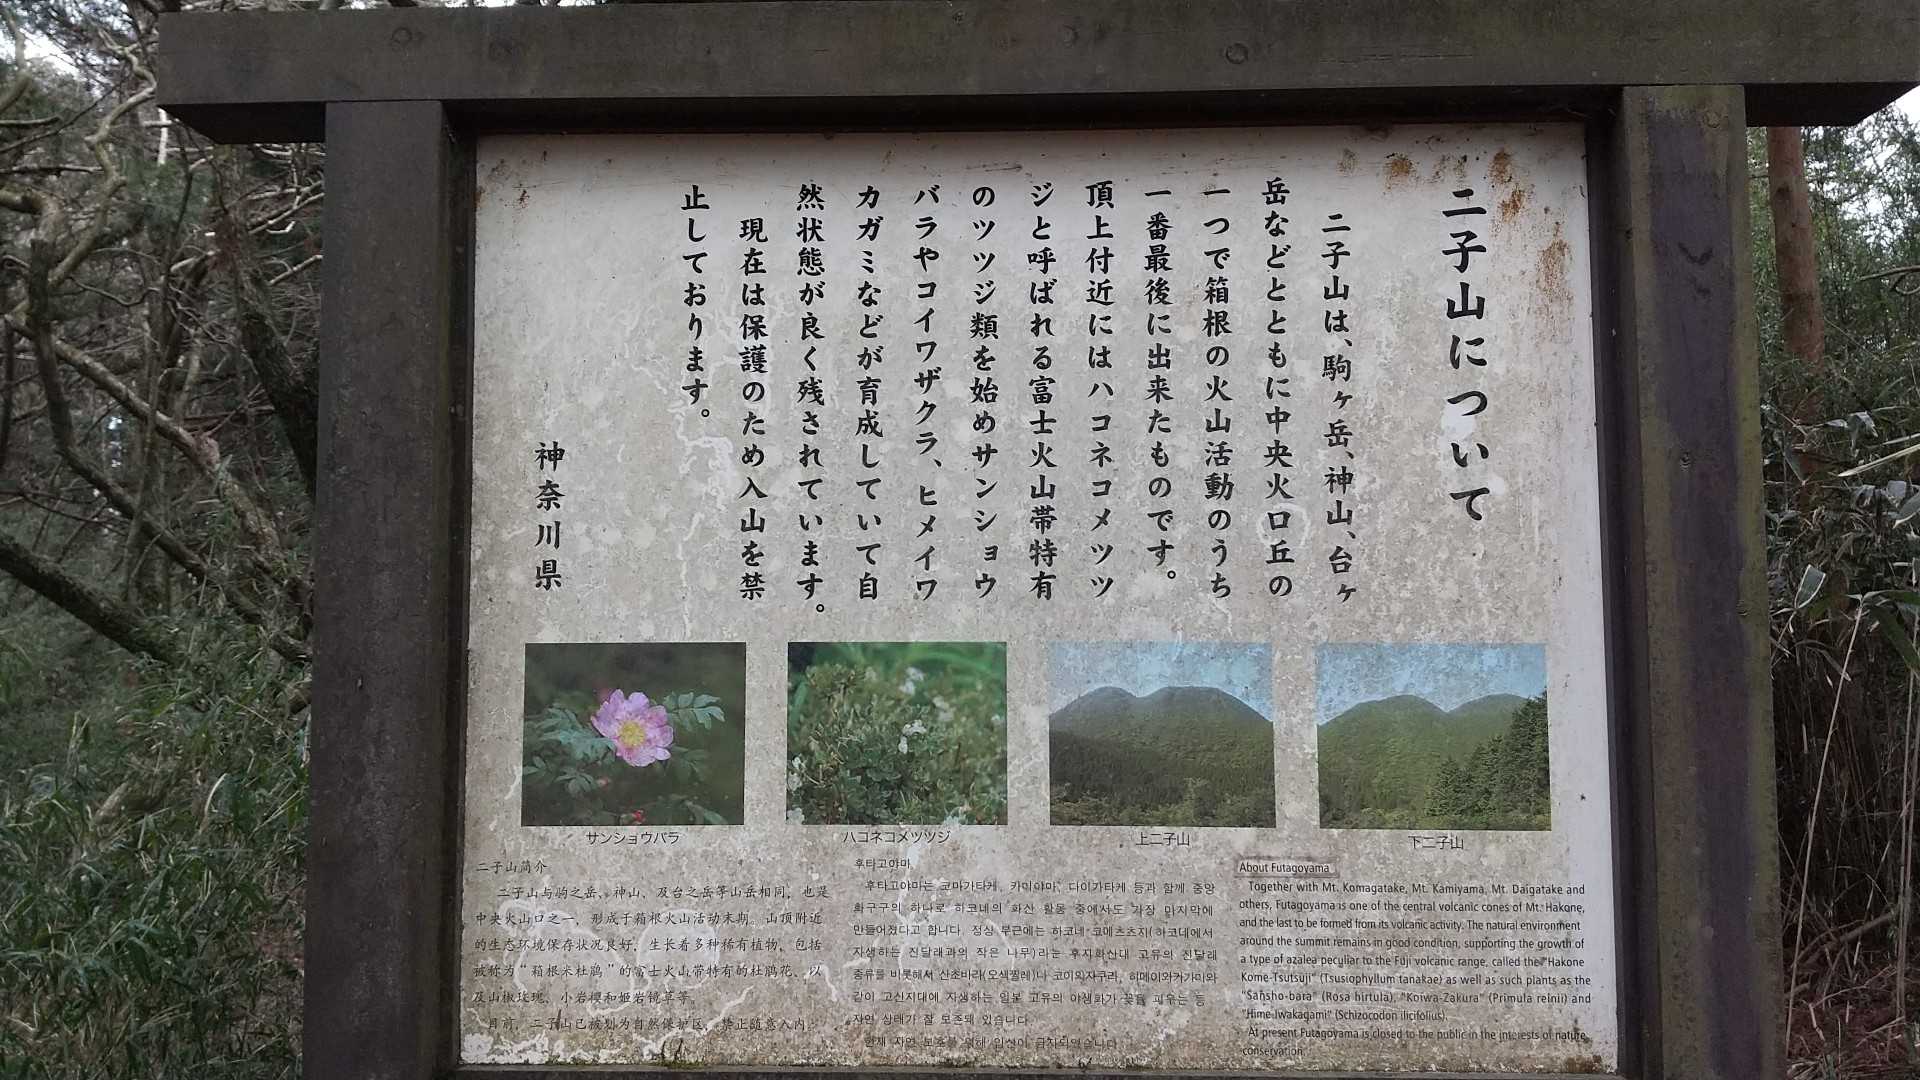 二子山について
二子山は、駒ヶ岳、神山、台ヶ
岳などとともに中央火口丘の
一つで箱根の火山活動のうち
一番最後に出来たものです。
頂上付近にはハコネコメツツ
ジと呼ばれる富士火山帯特有
のツツジ類を始めサンショウ
バラやコイワザクラ、ヒメイワ
カガミなどが育成していて自
然状態が良く残されています。
現在は保護のため入山を禁
止しております。
神奈川県
サンショウバラ
ハコネコメツツジ
上二子山
下二子山
二子山简介
二子山与驹之岳、神山、及台之岳等山岳相同，也是
中央火山口之一，形成于箱根火山活动末期。山顶附近
的生态环境保存状况良好，生长着多种稀有植物，包括
被称为“箱根米杜鹃”的富士火山带特有的杜鹃花、以
及山椒玫瑰、小岩樱和姬岩镜草等。
目前，二子山已被划为自然保护区，禁止随意入内。
후타고야마
후타고야마는 코마가타케, 카미야마, 다이가타케 등과 함께 중앙
화구구의 하나로 하코네의 화산 활동 중에서도 가장 마지막에
만들어졌다고 합니다. 정상 부근에는 하코네 코메츠츠지(하코네에서
지생하는 진달래과의 작은 나무)라는 후지화산대 고유의 진달래
종류를 비롯해서 산쇼바라(오색찔레)나 코이와자쿠라, 히메이와카가미와
같이 고산지대에 자생하는 일본 고유의 야생화가 꽃을 피우는 등
자연 상태가 잘 보존돼 있습니다.
현재 자연 보호를 위해 입산이 금지되었습니다.
About Futagoyama
Together with Mt. Komagatake, Mt. Kamiyama, Mt. Daigatake and
others, Futagoyama is one of the central volcanic cones of Mt. Hakone,
and the last to be formed from its volcanic activity. The natural environment
around the summit remains in good condition, supporting the growth of
a type of azalea peculiar to the Fuji volcanic range, called the "Hakone
Kome-Tsutsuji" (Tsusiophyllum tanakae) as well as such plants as the
"Sansho-bara" (Rosa hirtula), "Koiwa-Zakura" (Primula reinii) and
"Hime-Iwakagami" (Schizocodon ilicifolius).
At present Futagoyama is closed to the public in the interests of nature
conservation.